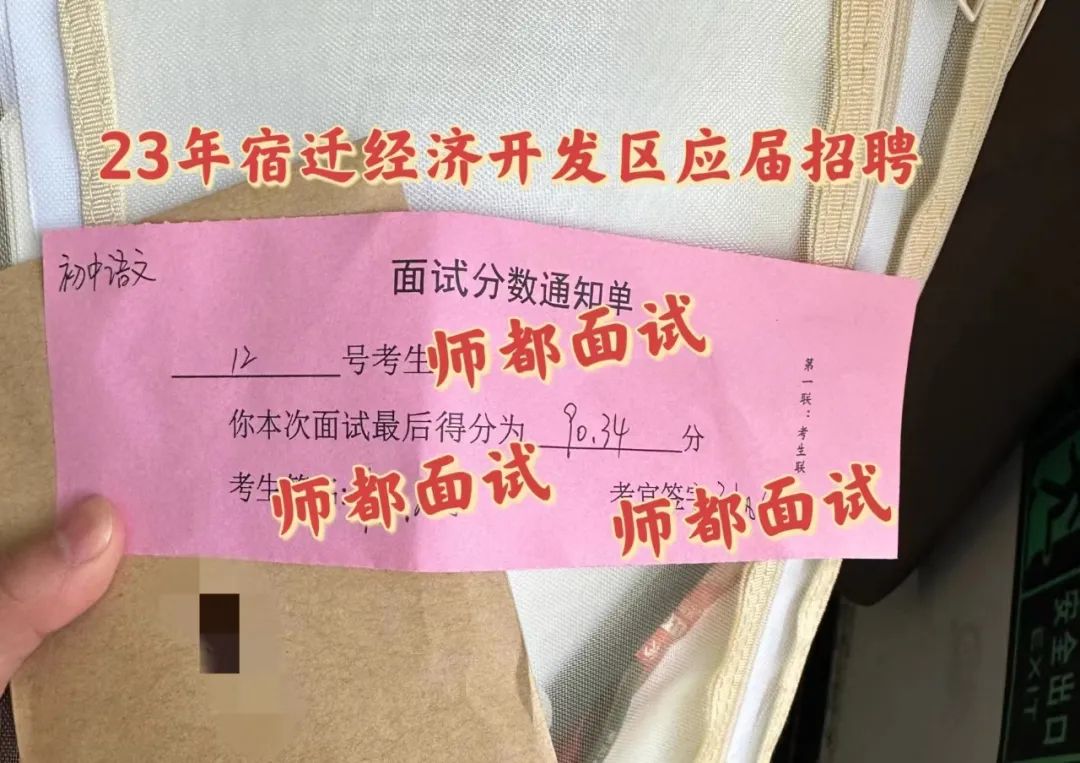 23年宿迁经济开发区应届招聘
初中语文
面试分数通知单
12 号考生
师都面试
你本次面试最后得分为 90.34 分
考生
师都面试
考官签字
师都面试
第一联：考生联
安全出口
EXIT